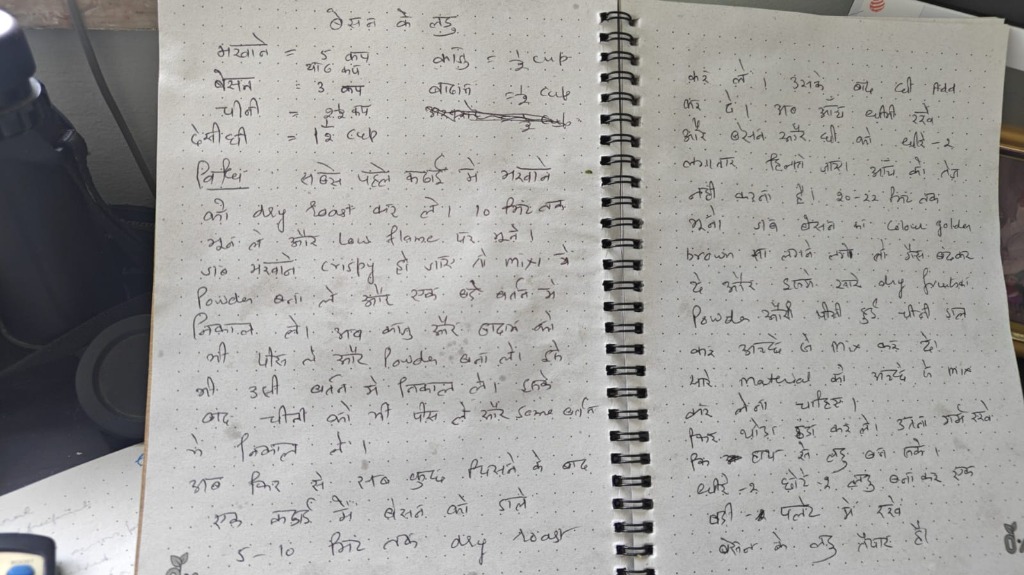 बेसन के लड्डु
मखाने = 5 कप काजु = ½ cup
कप
बेसन = 3 कप बादाम = ½ cup
चीनी = 2½ कप ½ cup
देसी घी = 1½ cup
विधि सबसे पहले कढाई में मखाने
को dry roast कर ले। 10 मिंट तक
भून ले और Low flame पर भूने।
जब मखाने crispy हो जाए तो mixi में
Powder बना ले और एक बडे बर्तन में
निकाल ले। अब काजु और बादाम को
भी पीस ले और Powder बना ले। इसे
भी उसी बर्तन में निकाल ले। इसके
बाद चीनी को भी पीस ले और same बर्तन
में निकाल ले।
अब फिर से सब कुछ पिसने के बाद
एक कढाई में बेसन को डाले
5-10 मिंट तक dry roast
कर ले। उसके बाद घी
कर दे। अब आँच धीमी रखे
और बेसन और घी को धीरे-२
लगातार हिलाते जाए। आँच को तेज
नही करना है। 20-22 मिंट तक
भूने। जब बेसन का colour golden
brown सा लगने लगे तो गैस बंदकर
दे और इसमे सारे dry fruits
Powder और पीसी हुई चीनी डाल
कर अच्छे से mix कर दे।
सारे material को अच्छे से mix
कर लेना चाहिए।
फिर थोडा ठंडा कर ले। इतना गर्म रखे
कि हाथ से लड्डु बन सके।
धीरे-२ धीरे-२ लड्डु बना कर एक
बडी पलेट में रखे
बेसन के लड्डु तैयार है।